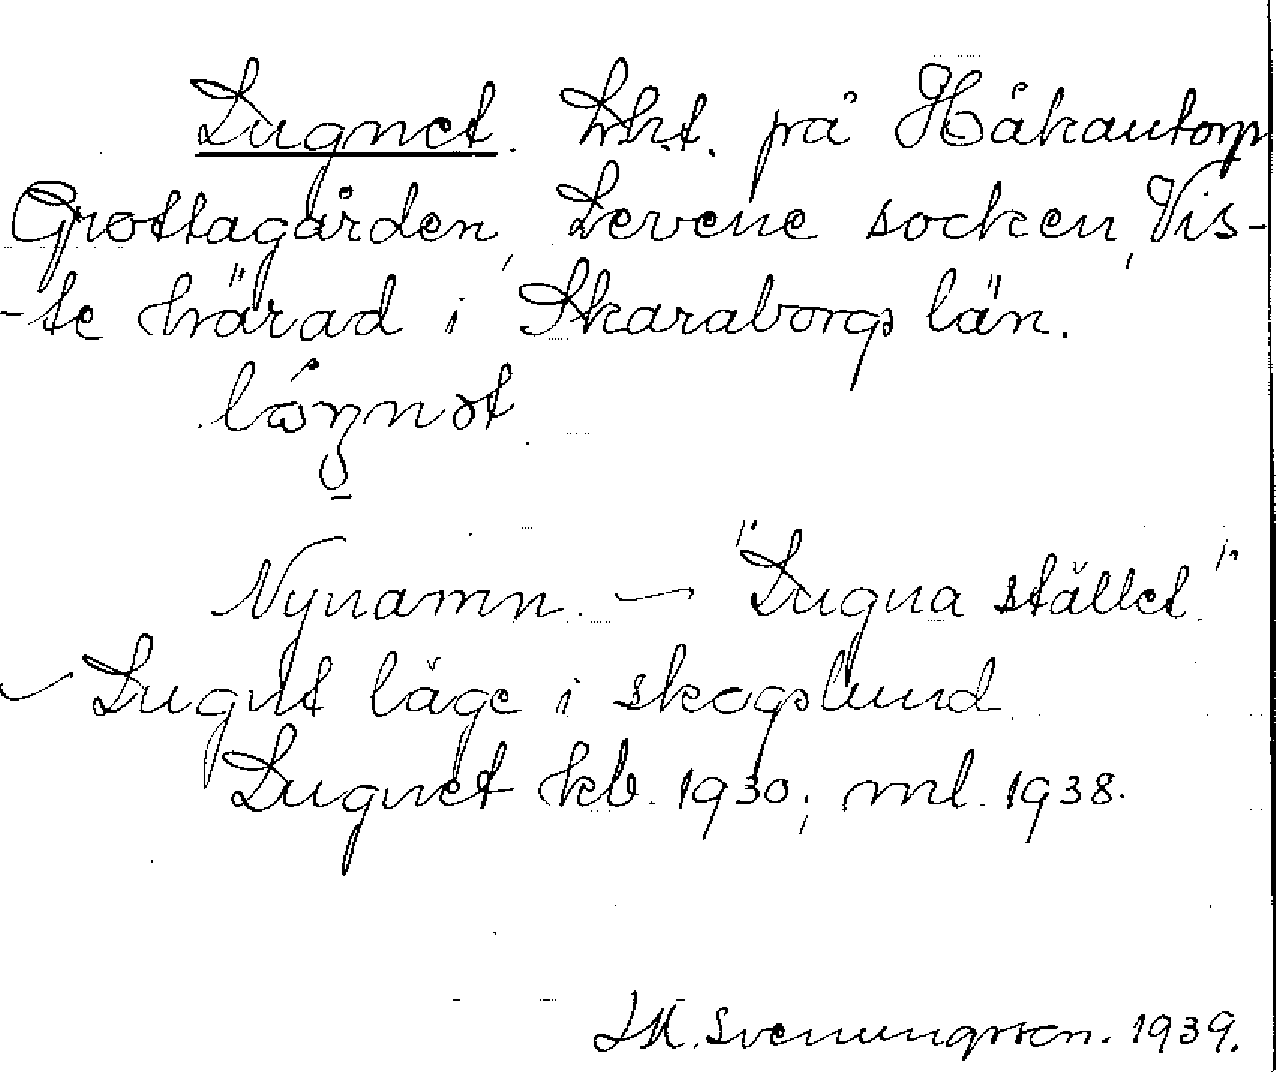 Lugnet. Lht. på Håkantorp
Grottagården, Levene socken, Vis-
-te härad i Skaraborgs län.
Nynamn. — "Lugna stället."
— Lugnt läge i skogslund
Lugnet kb. 1930; ml. 1938.
Svenungsson. 1939.